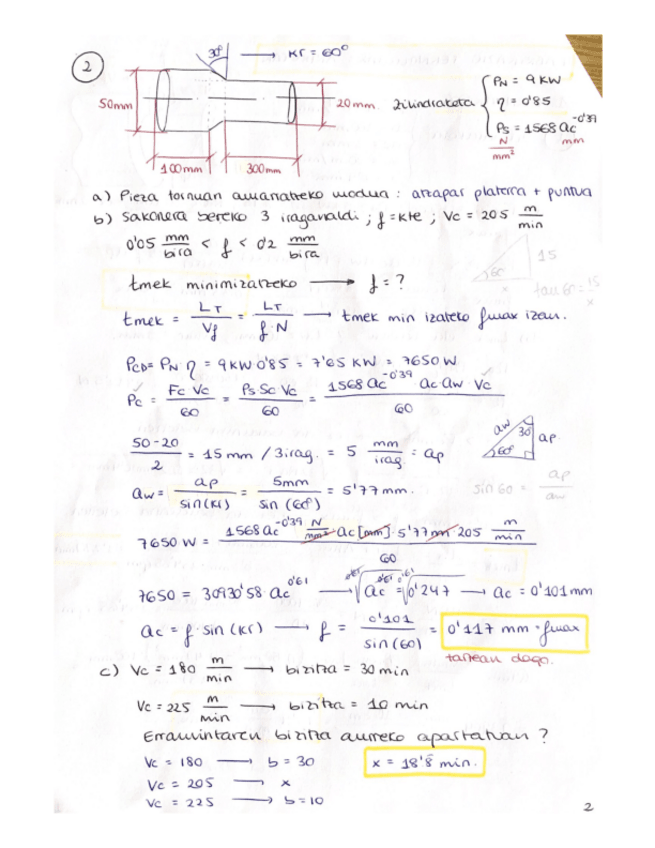 2
30° → Kr = 60°
50mm
20mm
100mm
300mm
Zilindraketa
PN = 9 KW
η = 0'85
Ps = 1568 ac^-0'39
N/mm²
mm
a) Pieza tornuan amarratzeko modua : atzapar platerra + puntua
b) Sakonera bereko 3 iraganaldi ; f = kte ; Vc = 205 m/min
0'05 mm/bira < f < 0'2 mm/bira
tmek minimizatzeko → f = ?
15
60
x
tan 60 = 15/x
tmek = LT/Vf = LT/f·N → tmek min izateko fmax izan.
PCD = PN · η = 9KW 0'85 = 7'65 KW = 7650 W
Pc = Fc Vc/60 = Ps Sc Vc/60 = 1568 ac^-0'39 · ac · aw · Vc/60
50-20/2 = 15 mm / 3 irag. = 5 mm/irag. = ap
aw
30
ap
60°
aw = ap/sin(Kr) = 5mm/sin (60°) = 5'77 mm.
sin 60 = ap/aw
7650 W = 1568 ac^-0'39 N/mm² · ac [mm] · 5'77 mm · 205 m/min / 60
7650 = 30930'58 · ac^0'61 → 0'61√ac^0'61 = 0'61√0'247 → ac = 0'101 mm
ac = f · sin (Kr) → f = 0'101/sin (60) = 0'117 mm = fmax
tartean dago.
c) Vc = 180 m/min → bizitza = 30 min
Vc = 225 m/min → bizitza = 10 min
Erramintaren bizitza aurreko apartatuan ?
Vc = 180 → b = 30
x = 18'8 min.
Vc = 205 → x
Vc = 225 → b = 10
2